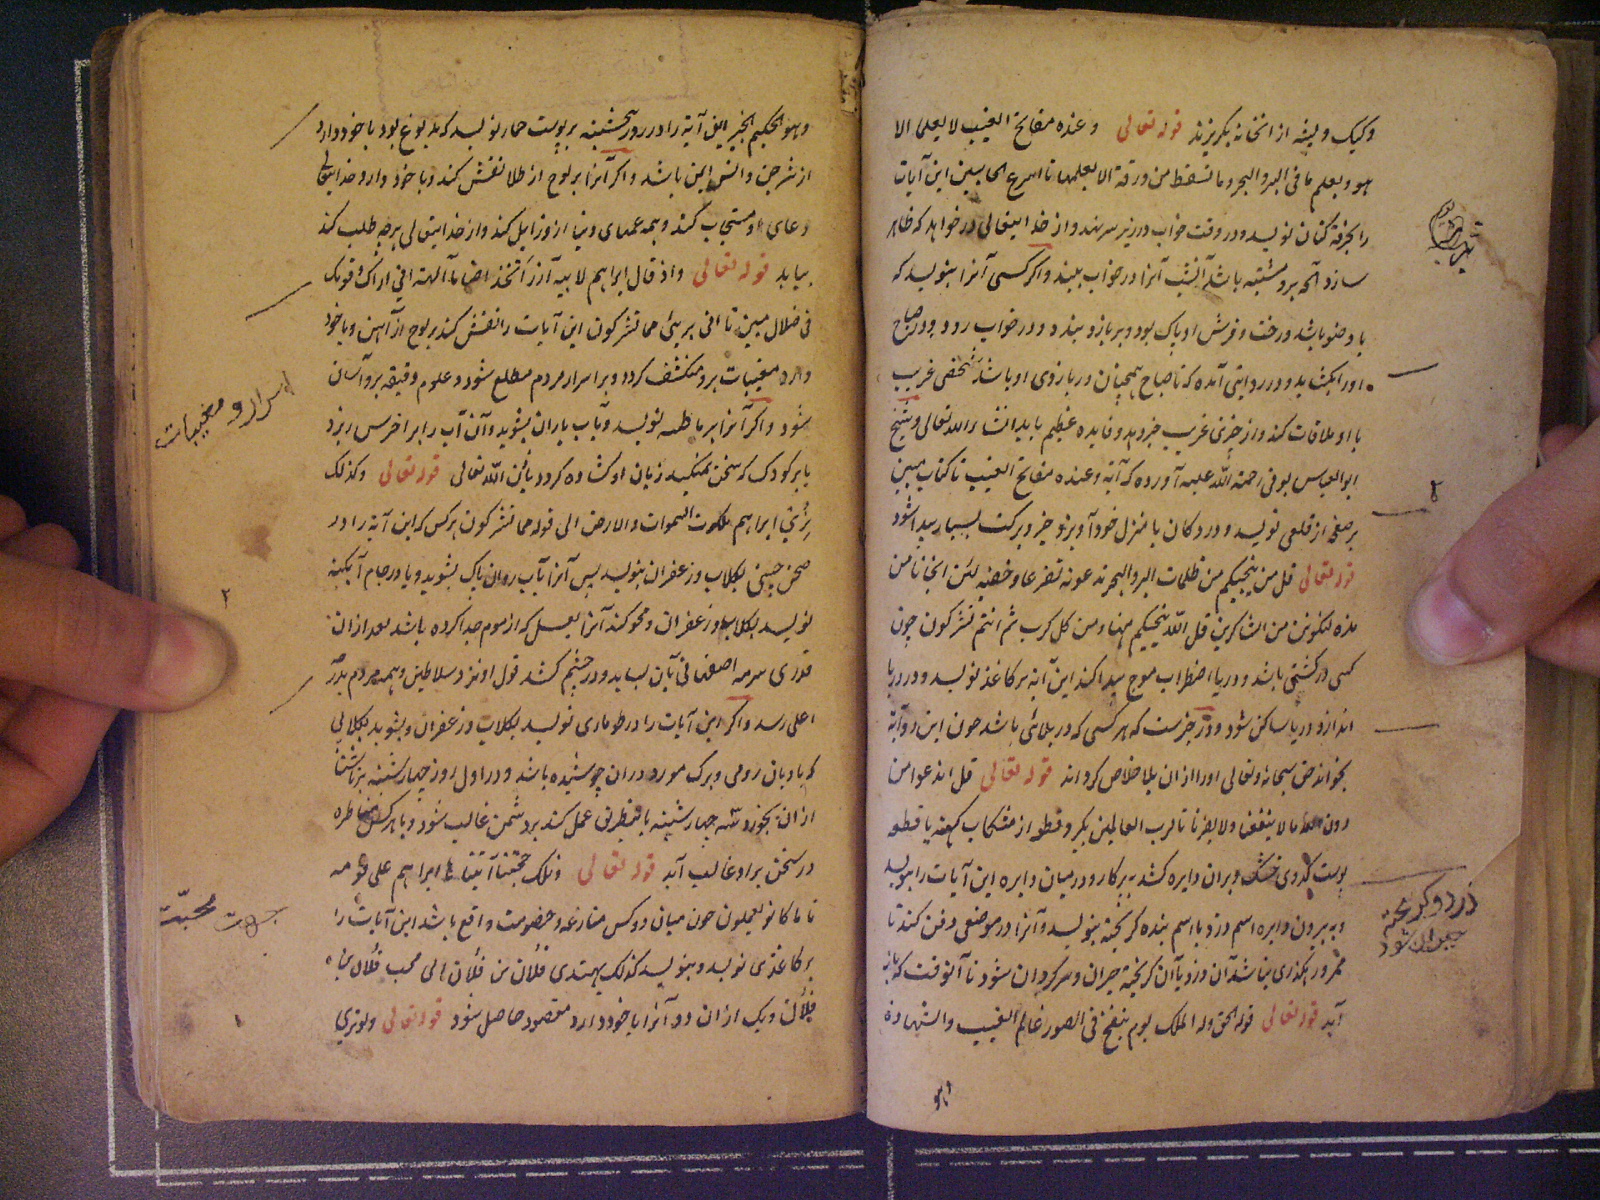 و کیک و پشه از انخانه بگریزند قوله تعالی و عنده مفاتح الغیب لا یعلمها الا
هو و یعلم ما فی البر و البحر و ما تسقط من ورقة الا یعلمها تا اسرع الحاسبین این آیات
را بخرقه کتان نویسد و در وقت خواب در زیر سر نهد و از خدایتعالی درخواهد که ظاهر
سازد آنچه برو مشتبه باشد آنشب آنرا در خواب بیند و اگر کسی آنرا بنویسد که
با وضو باشد و رخت و فرش او پاک بود و بر بازو بندد و در خواب رود و در صباح
اورا بکشاید و در روایتی آمده که تا صباح همچنان در بازوی او باشد شخصی غریب
با او ملاقات کند و از چیزی غریب خبر دهد و فایده عظیم یابد انشاء الله تعالی و شیخ
ابو العباس بونی رحمة الله علیه آورده که آیة و عنده مفاتح الغیب تا کتاب مبین
بر صفحه از قلعی نویسد و در دکان یا منزل خود آویزد خیر و برکت بسیار پیدا شود
قوله تعالی قل من ینجیکم من ظلمات البر و البحر تدعونه تضرعا و خفیه لئن انجانا من
هذه لنکونن من الشاکرین قل الله ینجیکم منها و من کل کرب ثم انتم تشرکون چون
کسی در کشتی باشد و دریا اضطراب موج پیدا کند این آیه بر کاغذ نویسد و در دریا
اندازد دریا ساکن شود و در خبرست که هر کسی که در بلائی باشد چون این دو آیة
بخواند حق سبحانه و تعالی اورا از ان بلا خلاص گرداند قوله تعالی قل اندعوا من
دون الله ما لا ینفعنا و لا یضرنا تا لرب العالمین بگیرد قطعه از مشکاب کهنه یا قطعه
پوست کدوی خشک و بران دایره کشد بپرکار و در میان دایره این آیات را بنویسد
و به بیرون دایره اسم دزد یا اسم بنده گریخته بنویسد و آنرا در موضعی دفن کند تا
ممر و رهگذری نباشد آن دزد یا آن گریخته حیران و سرگردان شود تا آنوقت که باز
آید قوله تعالی قوله الحق و له الملک یوم ینفخ فی الصور عالم الغیب و الشهادة
و هو
۲
دزد و گریخته
حیران شود
و هو الحکیم الخبیر این آیة را در روز پنجشنبه بر پوست حمار نویسد که مدبوغ بود با خود دارد
از شر جن و انس ایمن باشد و اگر آنرا بر لوح از طلا نقش کند و با خود دارد خدایتعالی
دعای او مستجاب کند و همه غمهای دنیا از و زایل کند و از خدایتعالی هرچه طلب کند
بیابد قوله تعالی و اذ قال ابراهیم لابیه آزر اتتخذ اصناما آلهة انی اراک و قومک
فی ضلال مبین تا انی بریء مما تشرکون این آیات را نقش کند بر لوح از آهن و با خود
دارد مغیبات برو منکشف گردد و بر اسرار مردم مطلع شود و علوم دقیقه برو آسان
شود و اگر آنرا بر نویسد و بآب باران بشوید و آن آب را بر اخرس ریزد
یا بر کودک که سخن نمیگیرد زبان او گشاده گردد باذن الله تعالی قوله تعالی و کذلک
نری ابراهیم ملکوت السموات و الارض الی قوله مما تشرکون هر کس که این آیة را در
صحن چینی بگلاب و زعفران بنویسد پس آنرا بآب روان پاک بشوید و یا در جام آبگینه
نویسد بگلاب و زعفران و محو کند آنرا بعسل که از موم جدا کرده باشد بعد از ان
قدری سرمه اصفهانی بآن بساید و در چشم کشد قول او نزد سلاطین و همه مردم بدرجه
اعلی رسد و اگر این آیات را در طوماری نویسد بگلاب و زعفران و بشوید بگلابی
که بادیان رومی و برگ مورد دران جوشیده باشد و در اول روز چهارشنبه بر ناشتا
از ان بخورد سه چهارشنبه باینطریق عمل کند بر دشمن غالب شود و با هر کس مناظره
در سخن بر او غالب آید قوله تعالی و تلک حجتنا آتیناها ابراهیم علی قومه
تا ما کانوا یعملون چون میان دو کس منازعه و خصومت واقع باشد این آیات را
بر کاغذی نویسد و بنویسد کذلک یهتدی فلان بن فلان الی محب فلان بن
فلان و یک از ان دو آنرا با خود دارد مقصود حاصل شود قوله تعالی و لو تری
اسرار و مغیبات
۲
جهت محبّت